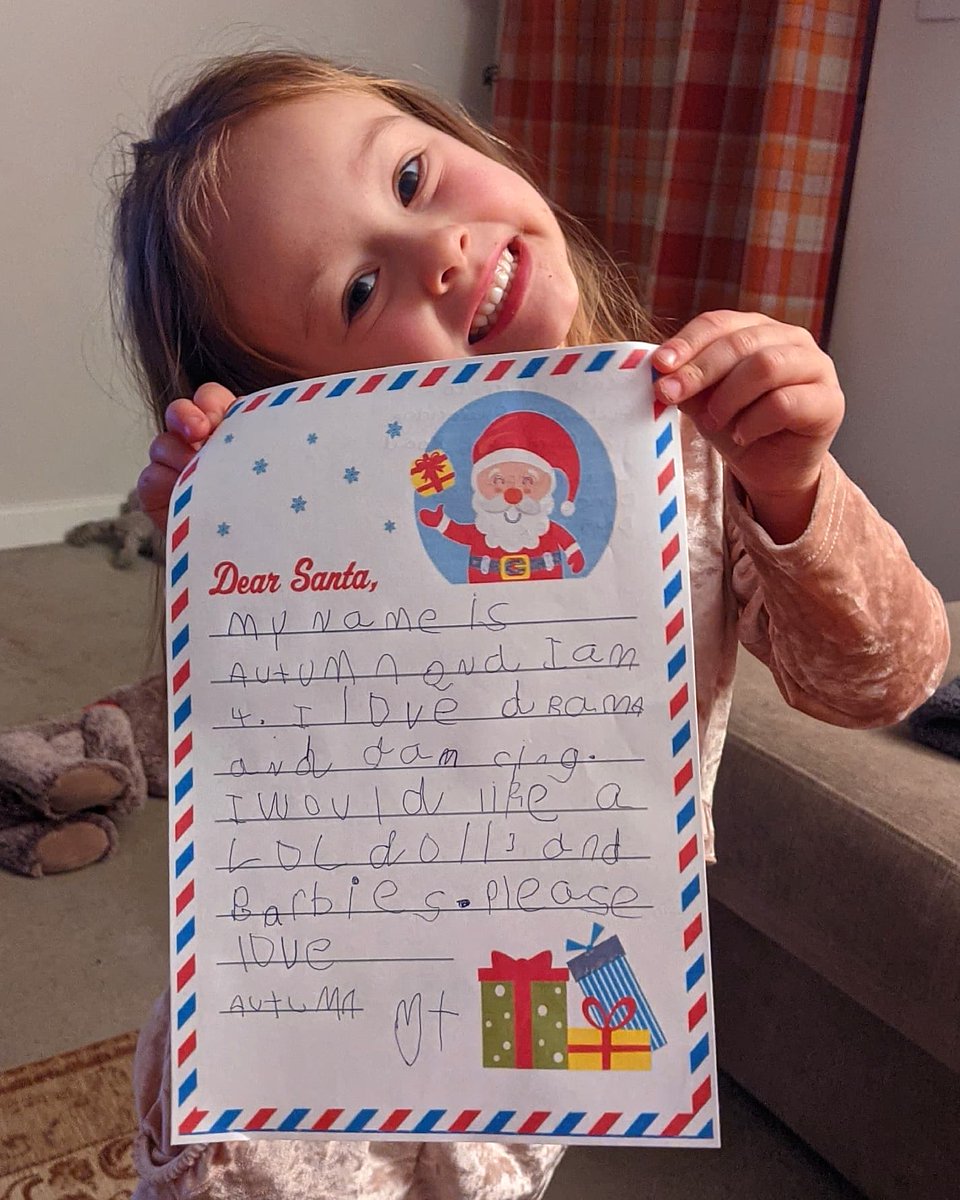 Dear Santa,
my name is
AUTUMN and I am
4. I love dRAMA
and dancing.
I would like a
LOL dolls and
Barbies. Please
love
AUTUMN